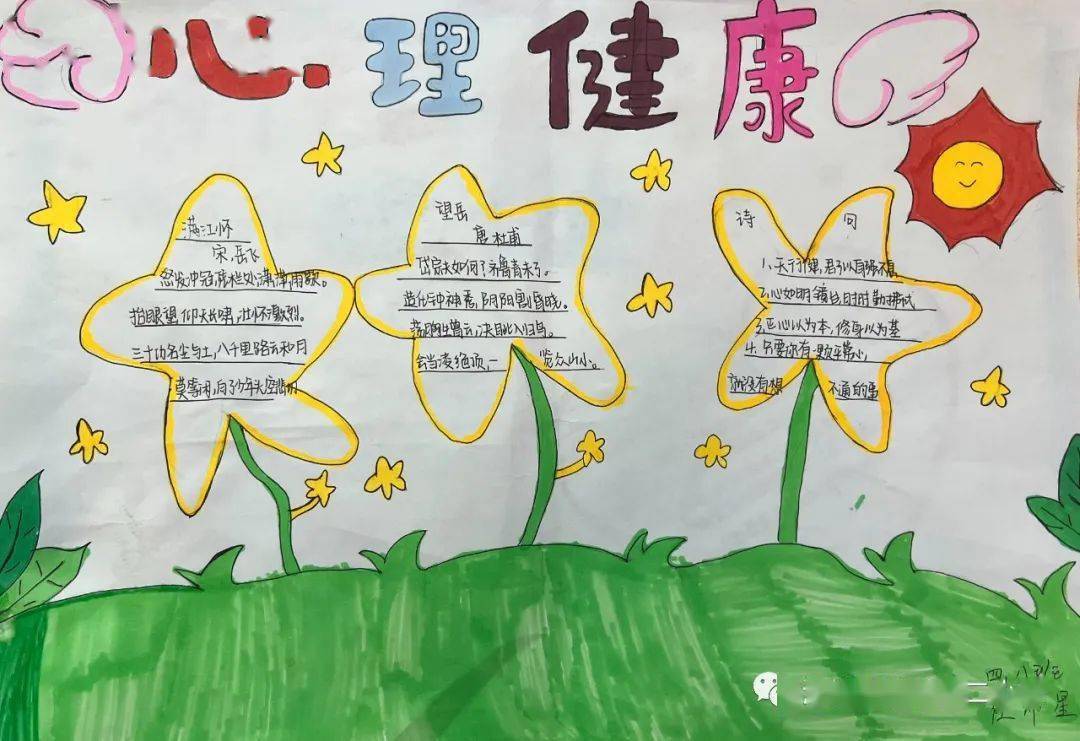 心理健康
满江怀
宋 岳飞
怒发冲冠，凭栏处，潇潇雨歇。
抬眼望 仰天长啸，壮怀激烈。
三十功名尘与土，八千里路云和月
莫等闲，白了少年头，空悲切
望岳
唐 杜甫
岱宗夫如何？齐鲁青未了。
造化钟神秀，阴阳割昏晓。
荡胸生曾云，决眦入归鸟。
会当凌绝顶，一览众山小。
诗句
1、天行健，君子以自强不息，
2、心如明镜台，时时勤拂拭
3、正心以为本，修身以为基
4、只要你有一颗平常心，
就没有想不通的
四、八班
星